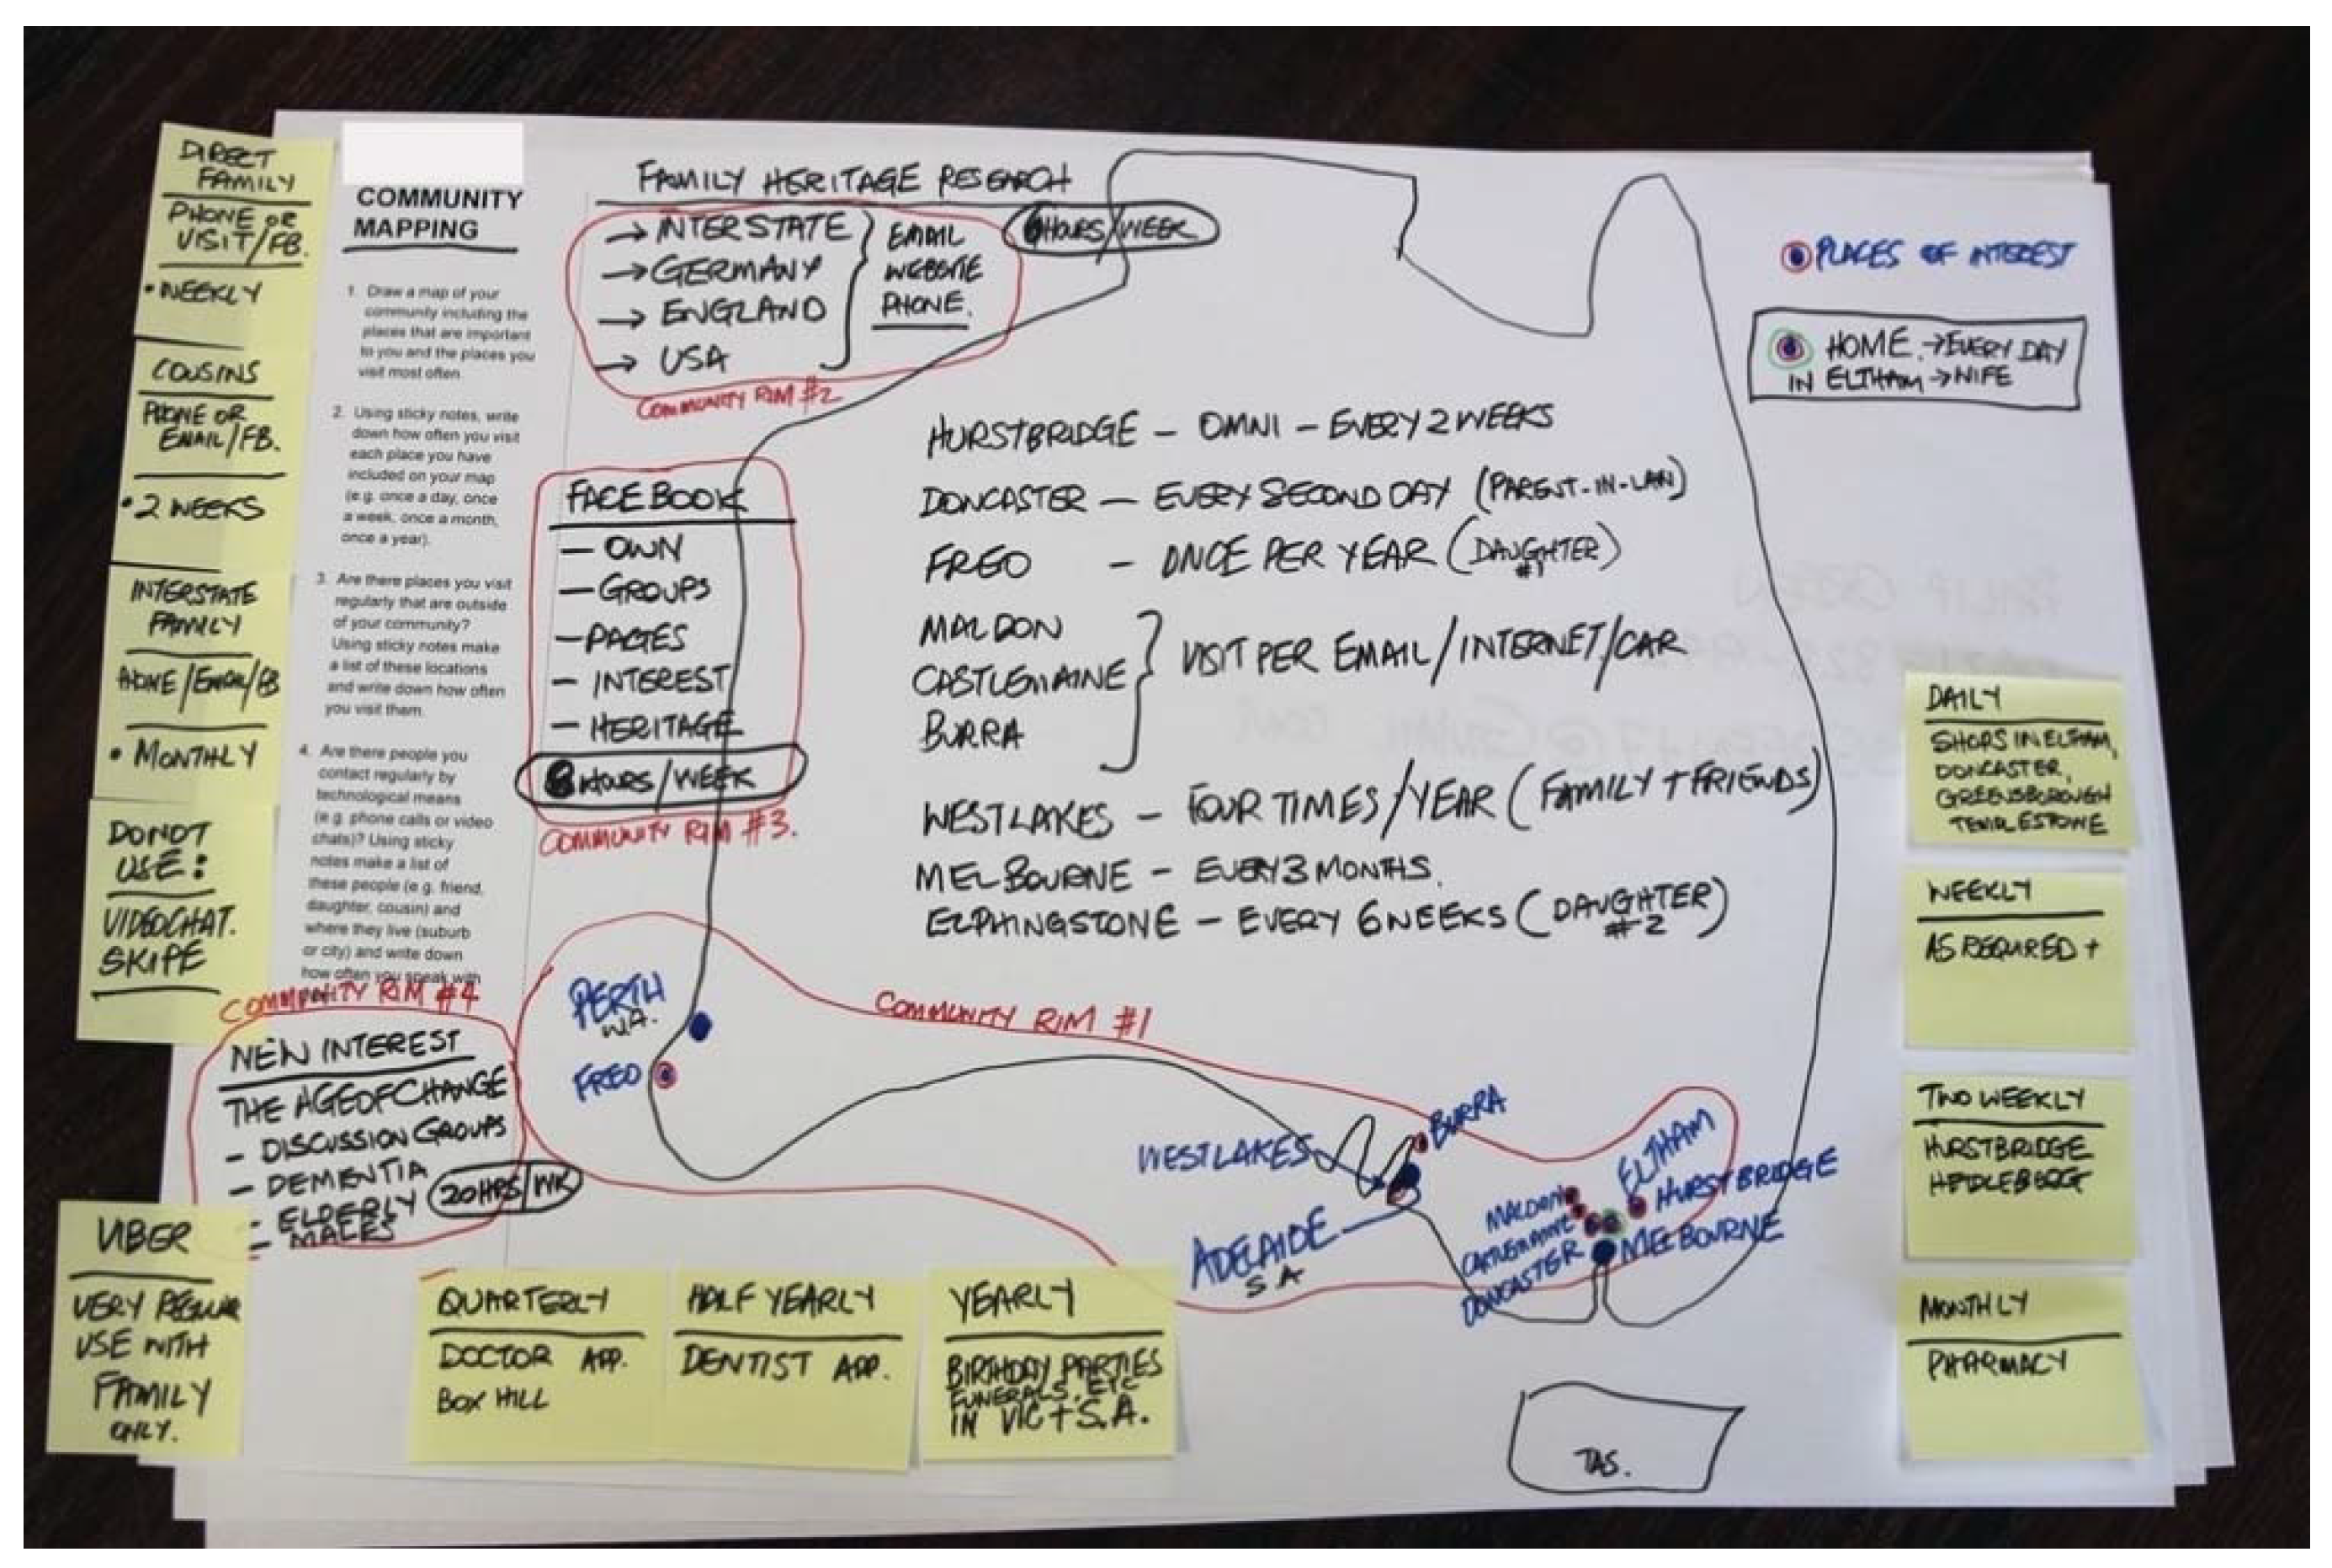 DIRECT
FAMILY
PHONE OR
VISIT/FB.
• WEEKLY
COUSINS
PHONE OR
EMAIL/FB.
• 2 WEEKS
INTERSTATE
FAMILY
PHONE/EMAIL/FB
• MONTHLY
DO NOT
USE:
VIDEOCHAT.
SKIPE
VIBER
VERY REGULAR
USE WITH
FAMILY
ONLY.
COMMUNITY
MAPPING
1. Draw a map of your
community including the
places that are important
to you and the places you
visit most often.
2. Using sticky notes, write
down how often you visit
each place you have
included on your map
(e.g. once a day, once
a week, once a month,
once a year).
3. Are there places you visit
regularly that are outside
of your community?
Using sticky notes make
a list of these locations
and write down how often
you visit them.
4. Are there people you
contact regularly by
technological means
(e.g. phone calls or video
chats)? Using sticky
notes make a list of
these people (e.g. friend,
daughter, cousin) and
where they live (suburb
or city) and write down
how often you speak with
COMMUNITY RIM #4
NEW INTEREST
THE AGE OF CHANGE
- DISCUSSION GROUPS
- DEMENTIA
- ELDERLY
- MALES
20HRS/WK
FAMILY HERITAGE RESEARCH
→ INTERSTATE
→ GERMANY
→ ENGLAND
→ USA
EMAIL
WEBSITE
PHONE.
HOURS/WEEK
COMMUNITY RIM #2
FACEBOOK
- OWN
- GROUPS
- PAGES
- INTEREST
- HERITAGE
8 HOURS/WEEK
COMMUNITY RIM #3.
PLACES OF INTEREST
HOME → EVERY DAY
IN ELTHAM → WIFE
HURSTBRIDGE - OMNI - EVERY 2 WEEKS
DONCASTER - EVERY SECOND DAY (PARENT-IN-LAW)
FREO - ONCE PER YEAR (DAUGHTER #1)
MALDON
CASTLEMAINE
BURRA
VISIT PER EMAIL/INTERNET/CAR
WESTLAKES - FOUR TIMES/YEAR (FAMILY + FRIENDS)
MELBOURNE - EVERY 3 MONTHS.
ELPHINGSTONE - EVERY 6 WEEKS (DAUGHTER #2)
COMMUNITY RIM #1
PERTH
W.A.
FREO
WESTLAKES
BURRA
ADELAIDE
S A
ELTHAM
HURSTBRIDGE
MALDON
CASTLEMAINE
DONCASTER
MELBOURNE
TAS.
DAILY
SHOPS IN ELTHAM,
DONCASTER,
GREENSBOROUGH
TEMPLESTOWE
WEEKLY
AS REQUIRED +
TWO WEEKLY
HURSTBRIDGE
HEIDLEBERG
MONTHLY
PHARMACY
QUARTERLY
DOCTOR APP.
BOX HILL
HALF YEARLY
DENTIST APP.
YEARLY
BIRTHDAY PARTIES
FUNERALS, ETC
IN VIC + S.A.